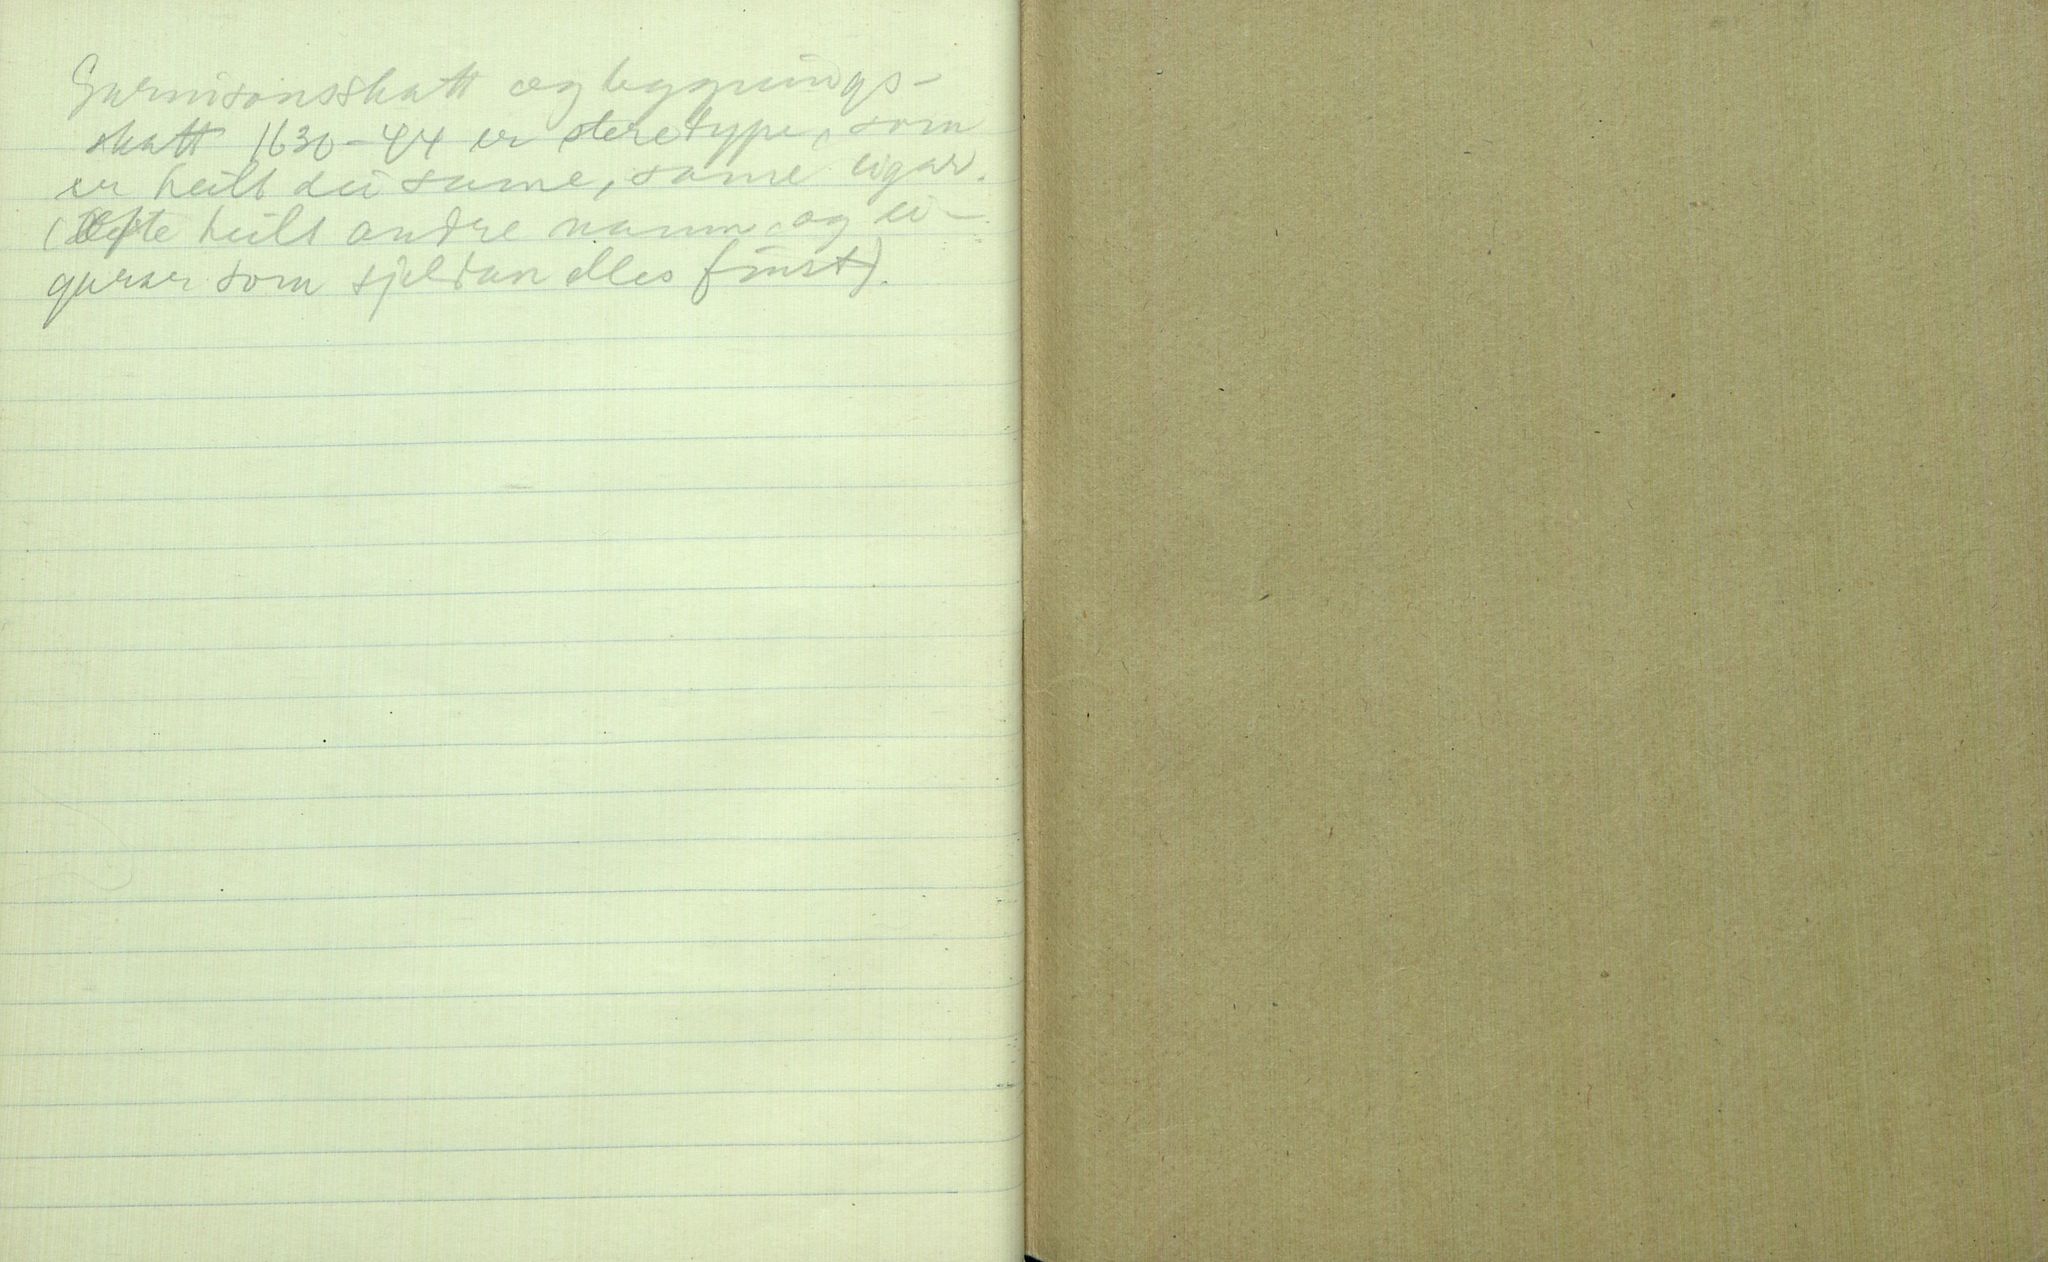 Garnisonsskatt og bygnings-
skatt 1630-44 er steretype, som
er heilt dei same, same eigar.
(Ofte heilt andre namn og ei-
gurar som sjeldan elles finst).